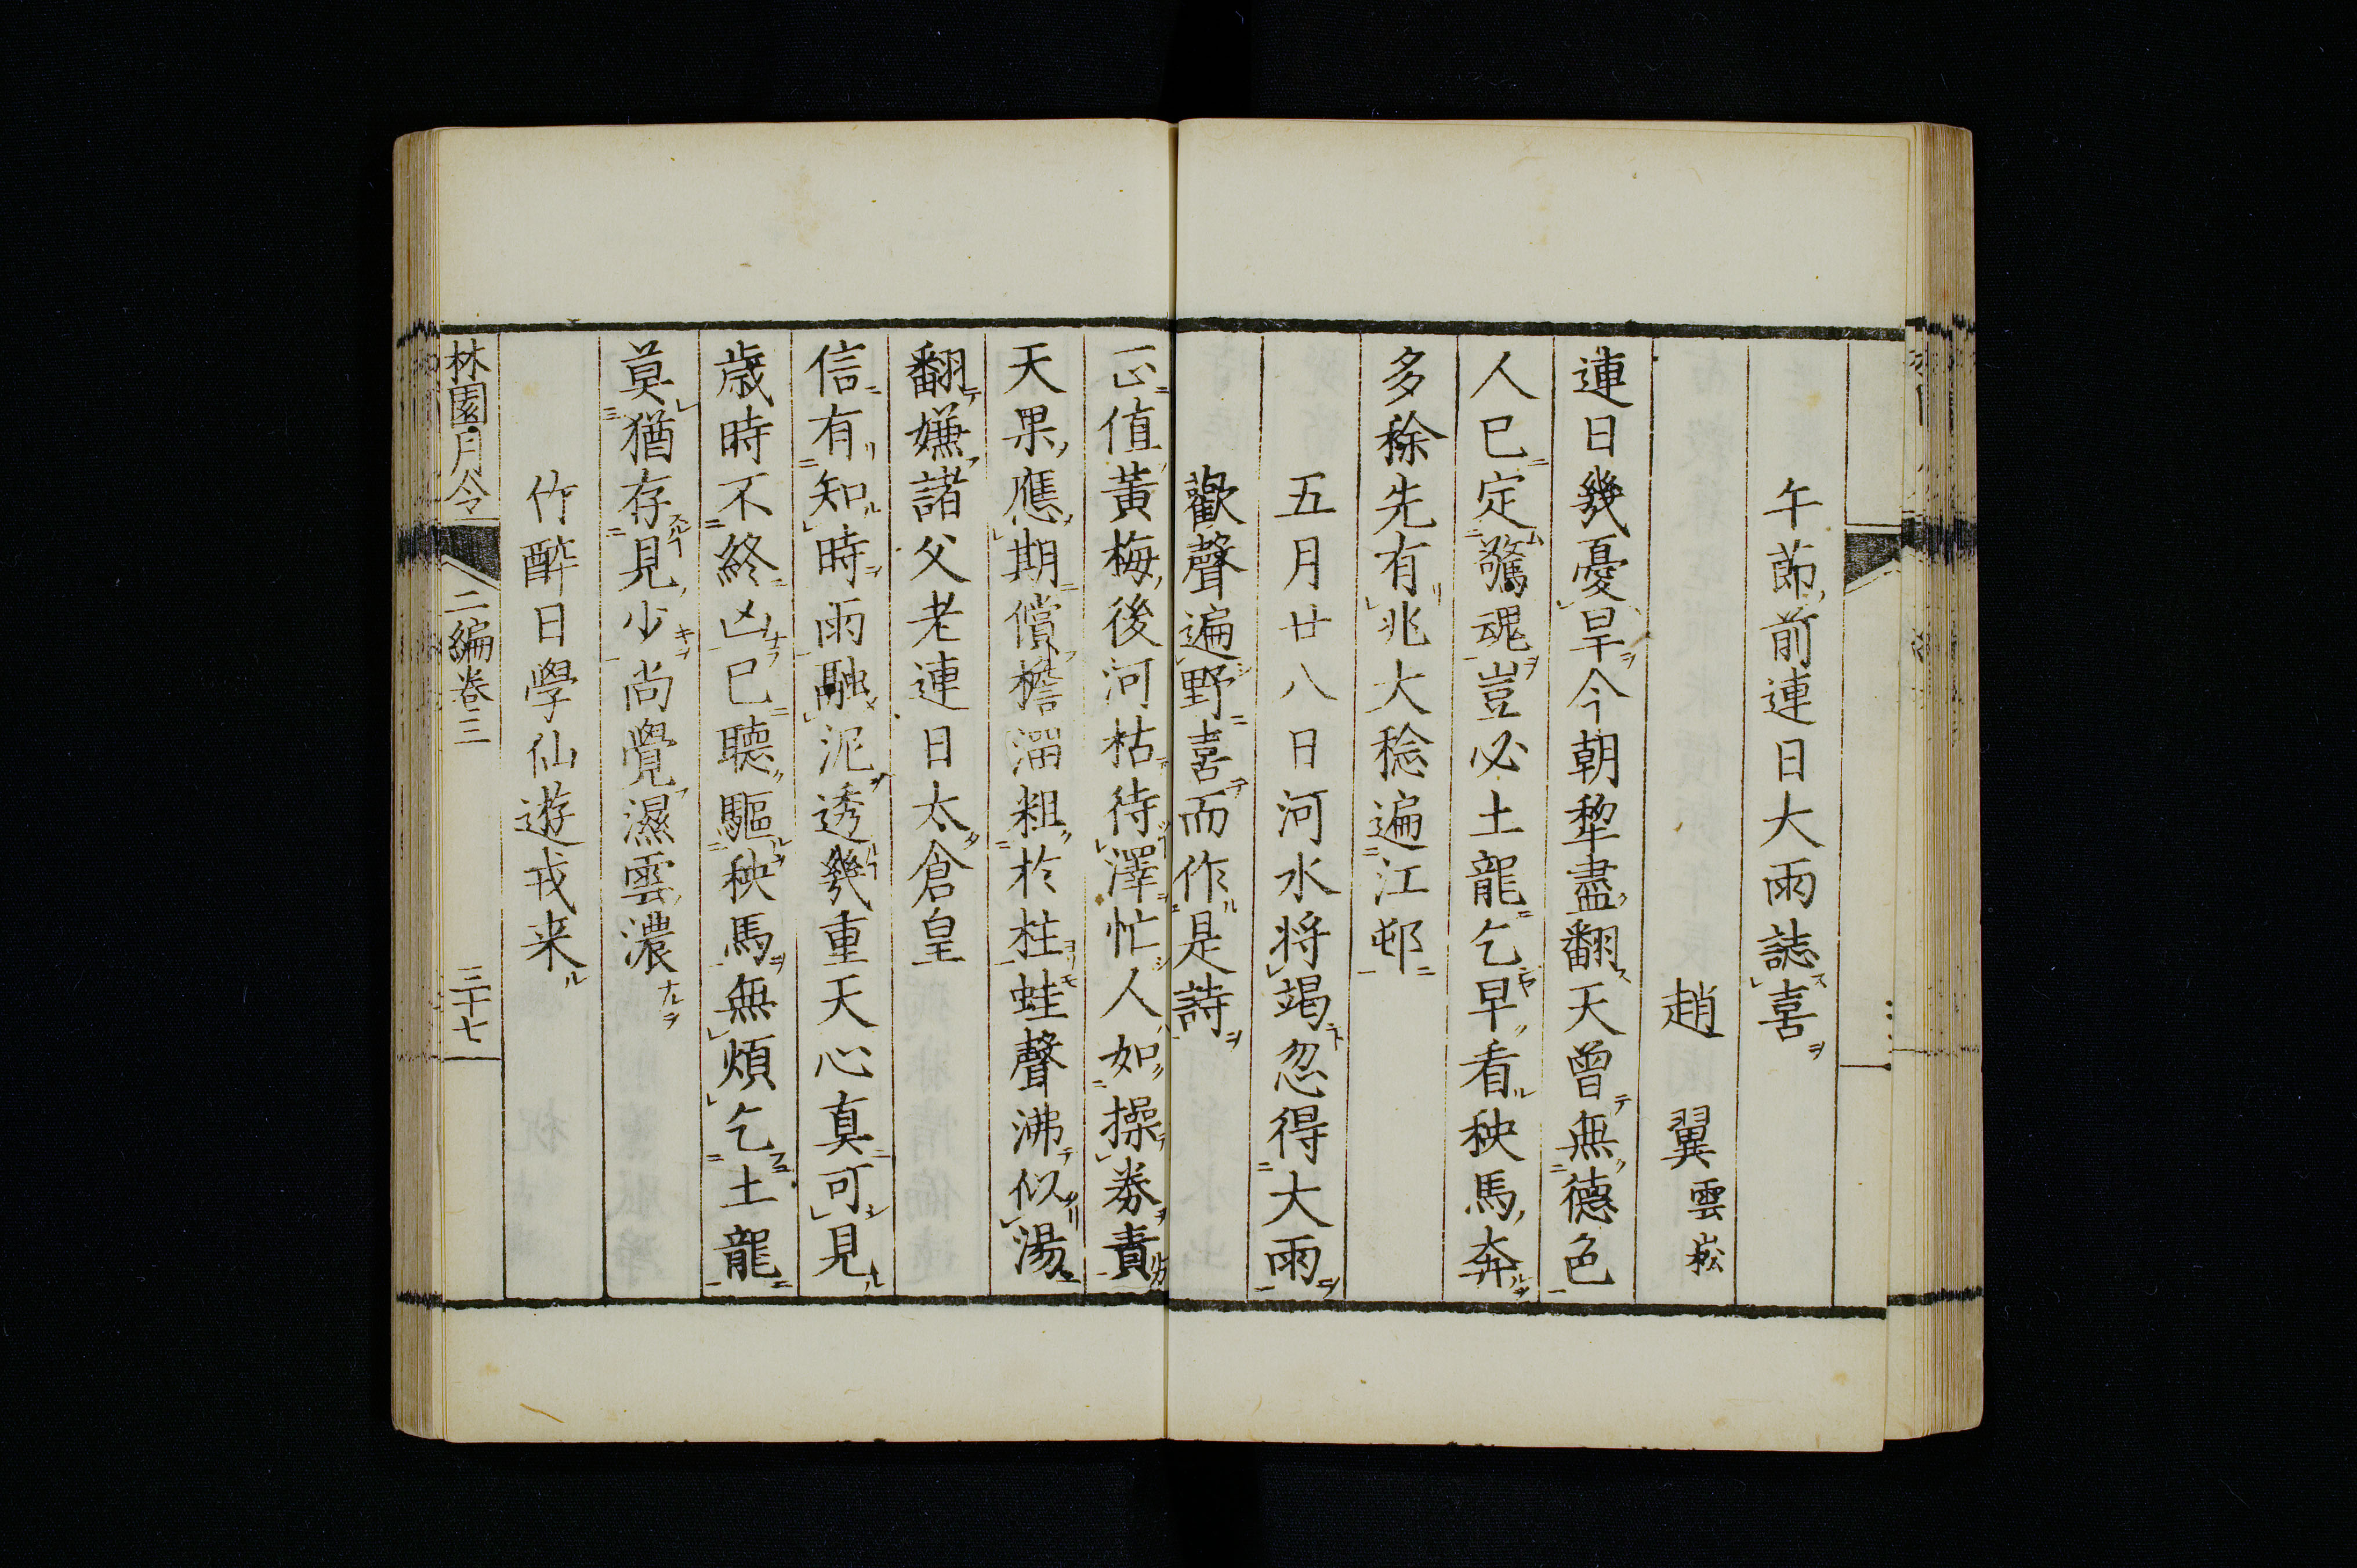 午莭前連日大雨誌喜
趙翼雲崧
連日幾憂旱今朝犂盡翻天曾無德色
人已定驚魂豈必土龍乞早看秧馬奔
多稌先有兆大稔遍江邨
五月廿八日河水将竭忽得大雨
歡聲遍野喜而作是詩
正值黃梅後河枯待澤忙人如操劵責
天果應期償檐溜粗於柱蛙聲沸似湯
翻嫌諸父老連日太倉皇
信有知時雨融泥透幾重天心真可見
歳時不終凶已聽驅秧馬無煩乞土龍
莫猶存見少尚覺濕雲濃
竹酔日學仙遊戎来
林園月令 二編卷三 三十七